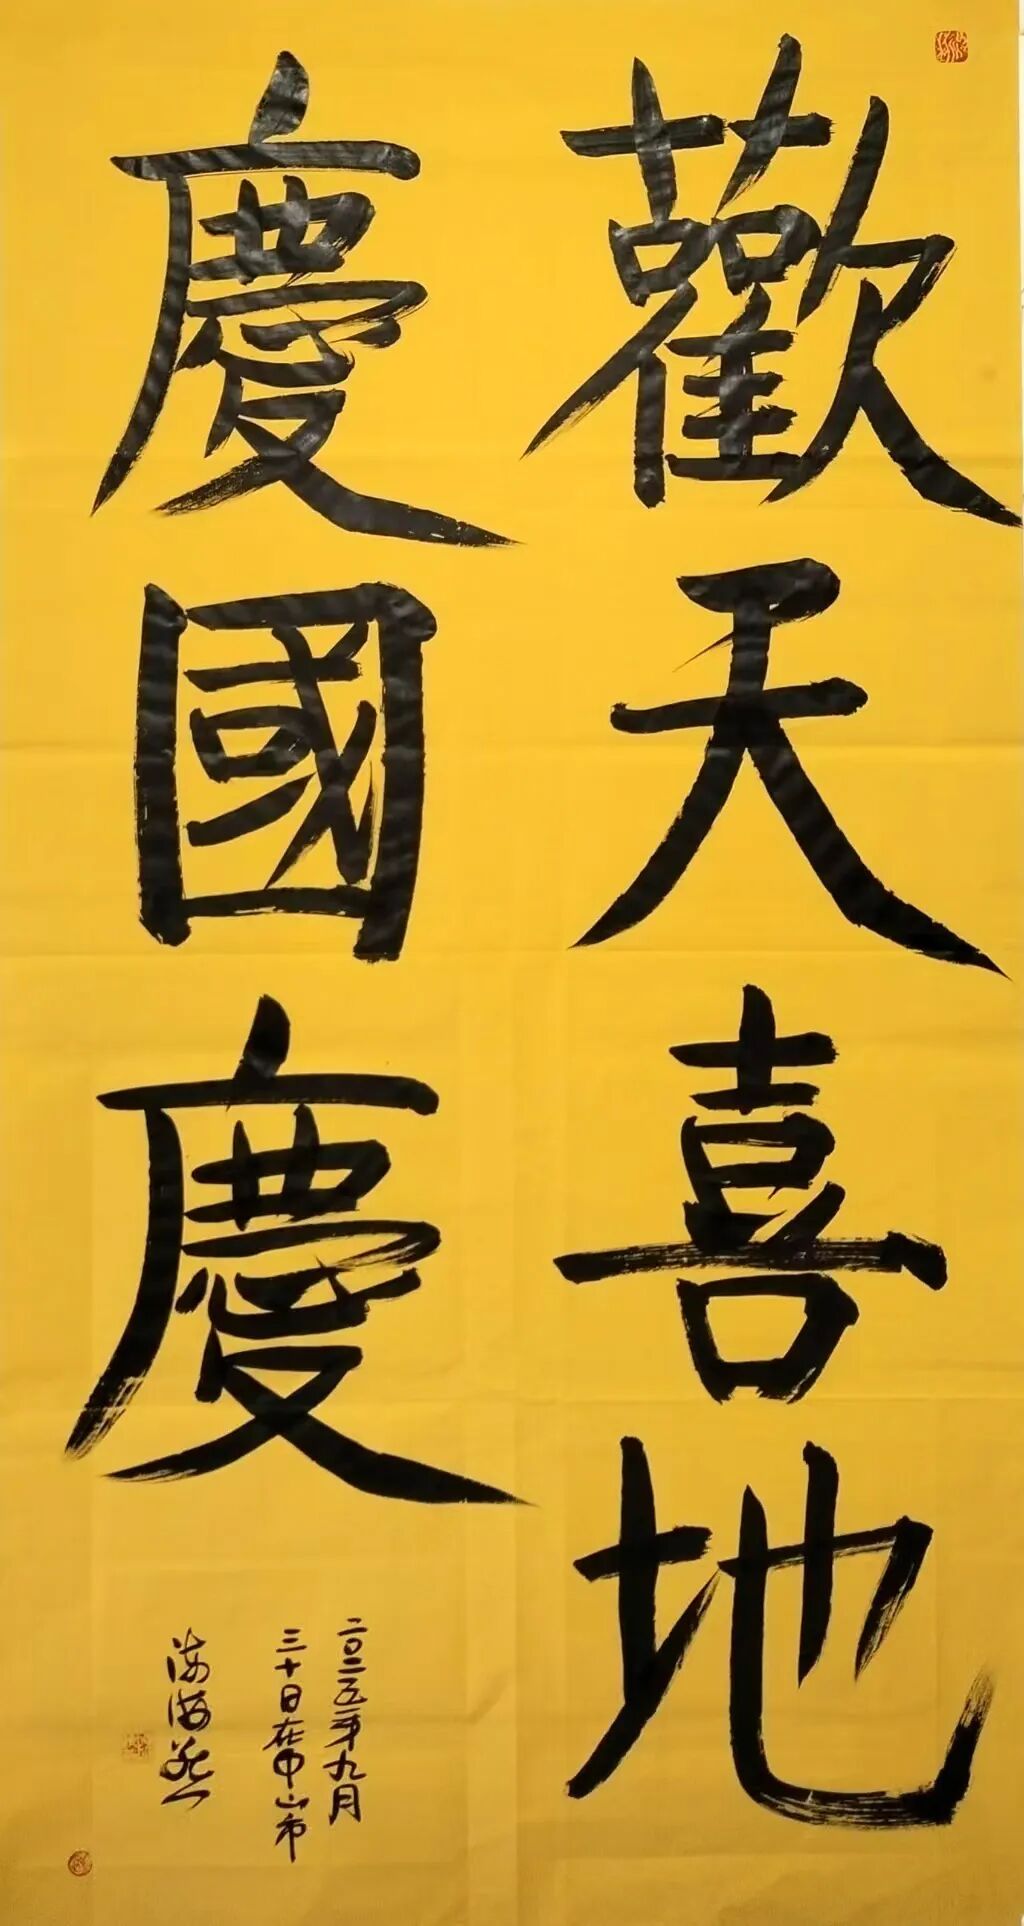 歡天喜地
慶國慶
二〇二五年九月
三十日在中山市